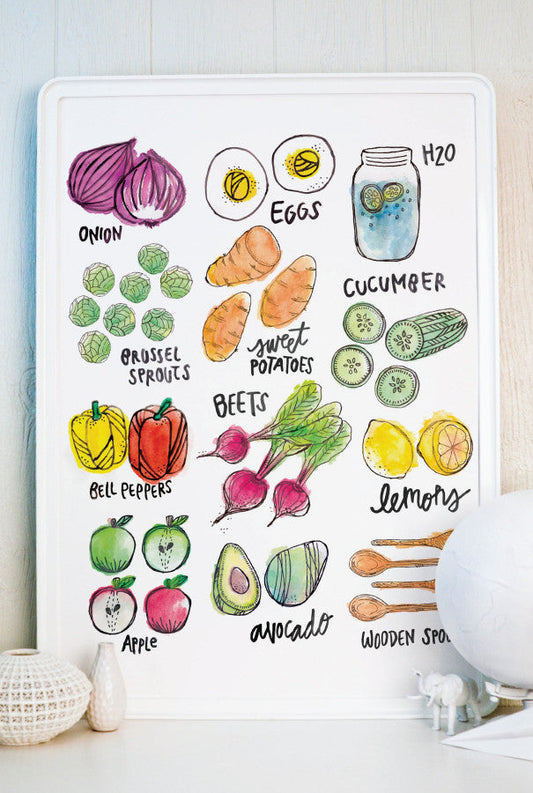 ONION
EGGS
H2O
BRUSSEL
SPROUTS
sweet
POTATOES
CUCUMBER
BELL PEPPERS
BEETS
lemons
Apple
avocado
WOODEN SPO